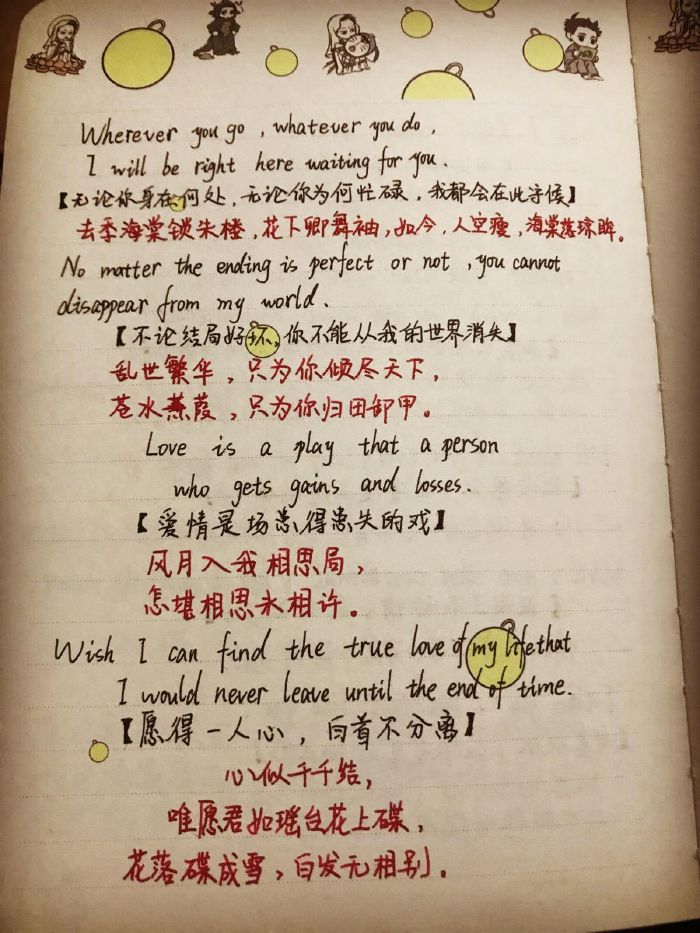 Wherever you go , whatever you do ,
I will be right here waiting for you .
【无论你身在何处，无论你为何忙碌，我都会在此守候】
去季海棠锁朱楼，花下卿舞袖，如今，人空瘦，海棠落眸。
No matter the ending is perfect or not , you cannot
disappear from my world .
【不论结局好坏，你不能从我的世界消失】
乱世繁华，只为你倾尽天下，
苍水蒹葭，只为你归田卸甲。
Love is a play that a person
who gets gains and losses .
【爱情是场患得患失的戏】
风月入我相思局，
怎堪相思未相许。
Wish I can find the true love of my life that
I would never leave until the end of time.
【愿得一人心，白首不分离】
心似千千结，
唯愿君如瑶台花上碟，
花落碟成雪，白发无相别。